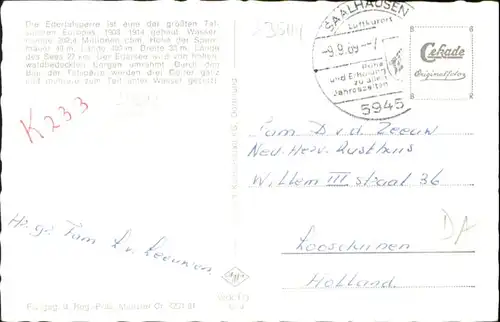 Die Edertalsperre ist eine der größten Tal-
sperren Europas 1908 1914 gebaut Wasser
menge 202,4 Millionen cbm, Höhe der Sperr
mauer 48 m, Länge 400 m, Breite 35 m, Länge
des Sees 27 km. Der Edersee wird von hohen
waldbedeckten Bergen umrahmt. Durch den
Bau der Talsperre werden drei Dörfer ganz
und mehrere zum Teil unter Wasser gesetzt
K233
SAALHAUSEN
Luftkurort
-9.9.69
Ruhe
und Erholung
zu allen
Jahreszeiten
5945
Cekade
Originalfoto
Fam D. v.d. Zeeuw
Ned. Herv. Rusthuis
Willem III straat 36
Loosduinen
Holland
DA
Hr. gr. Fam L v. Leeuwen
Agfa